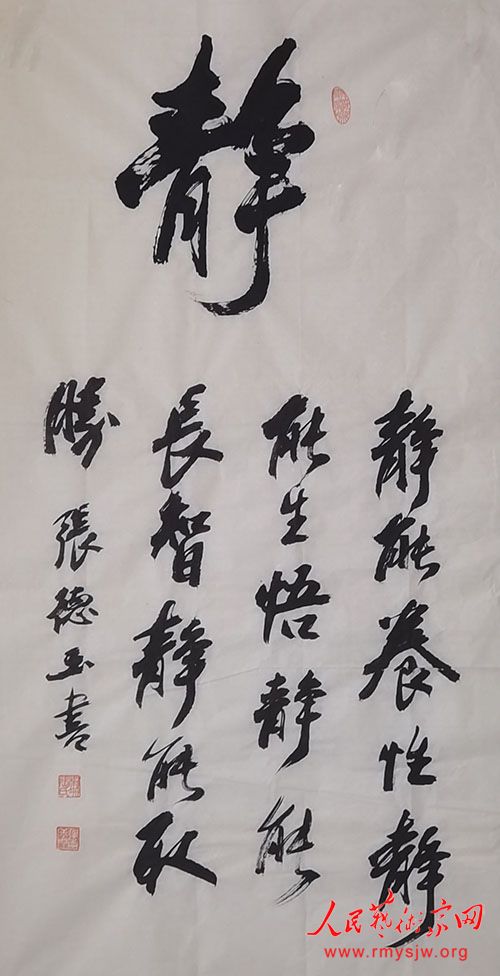 静
静能養性静
能生悟静能
長智静能取
勝
張德玉書
人民藝術家网
www.rmysjw.org